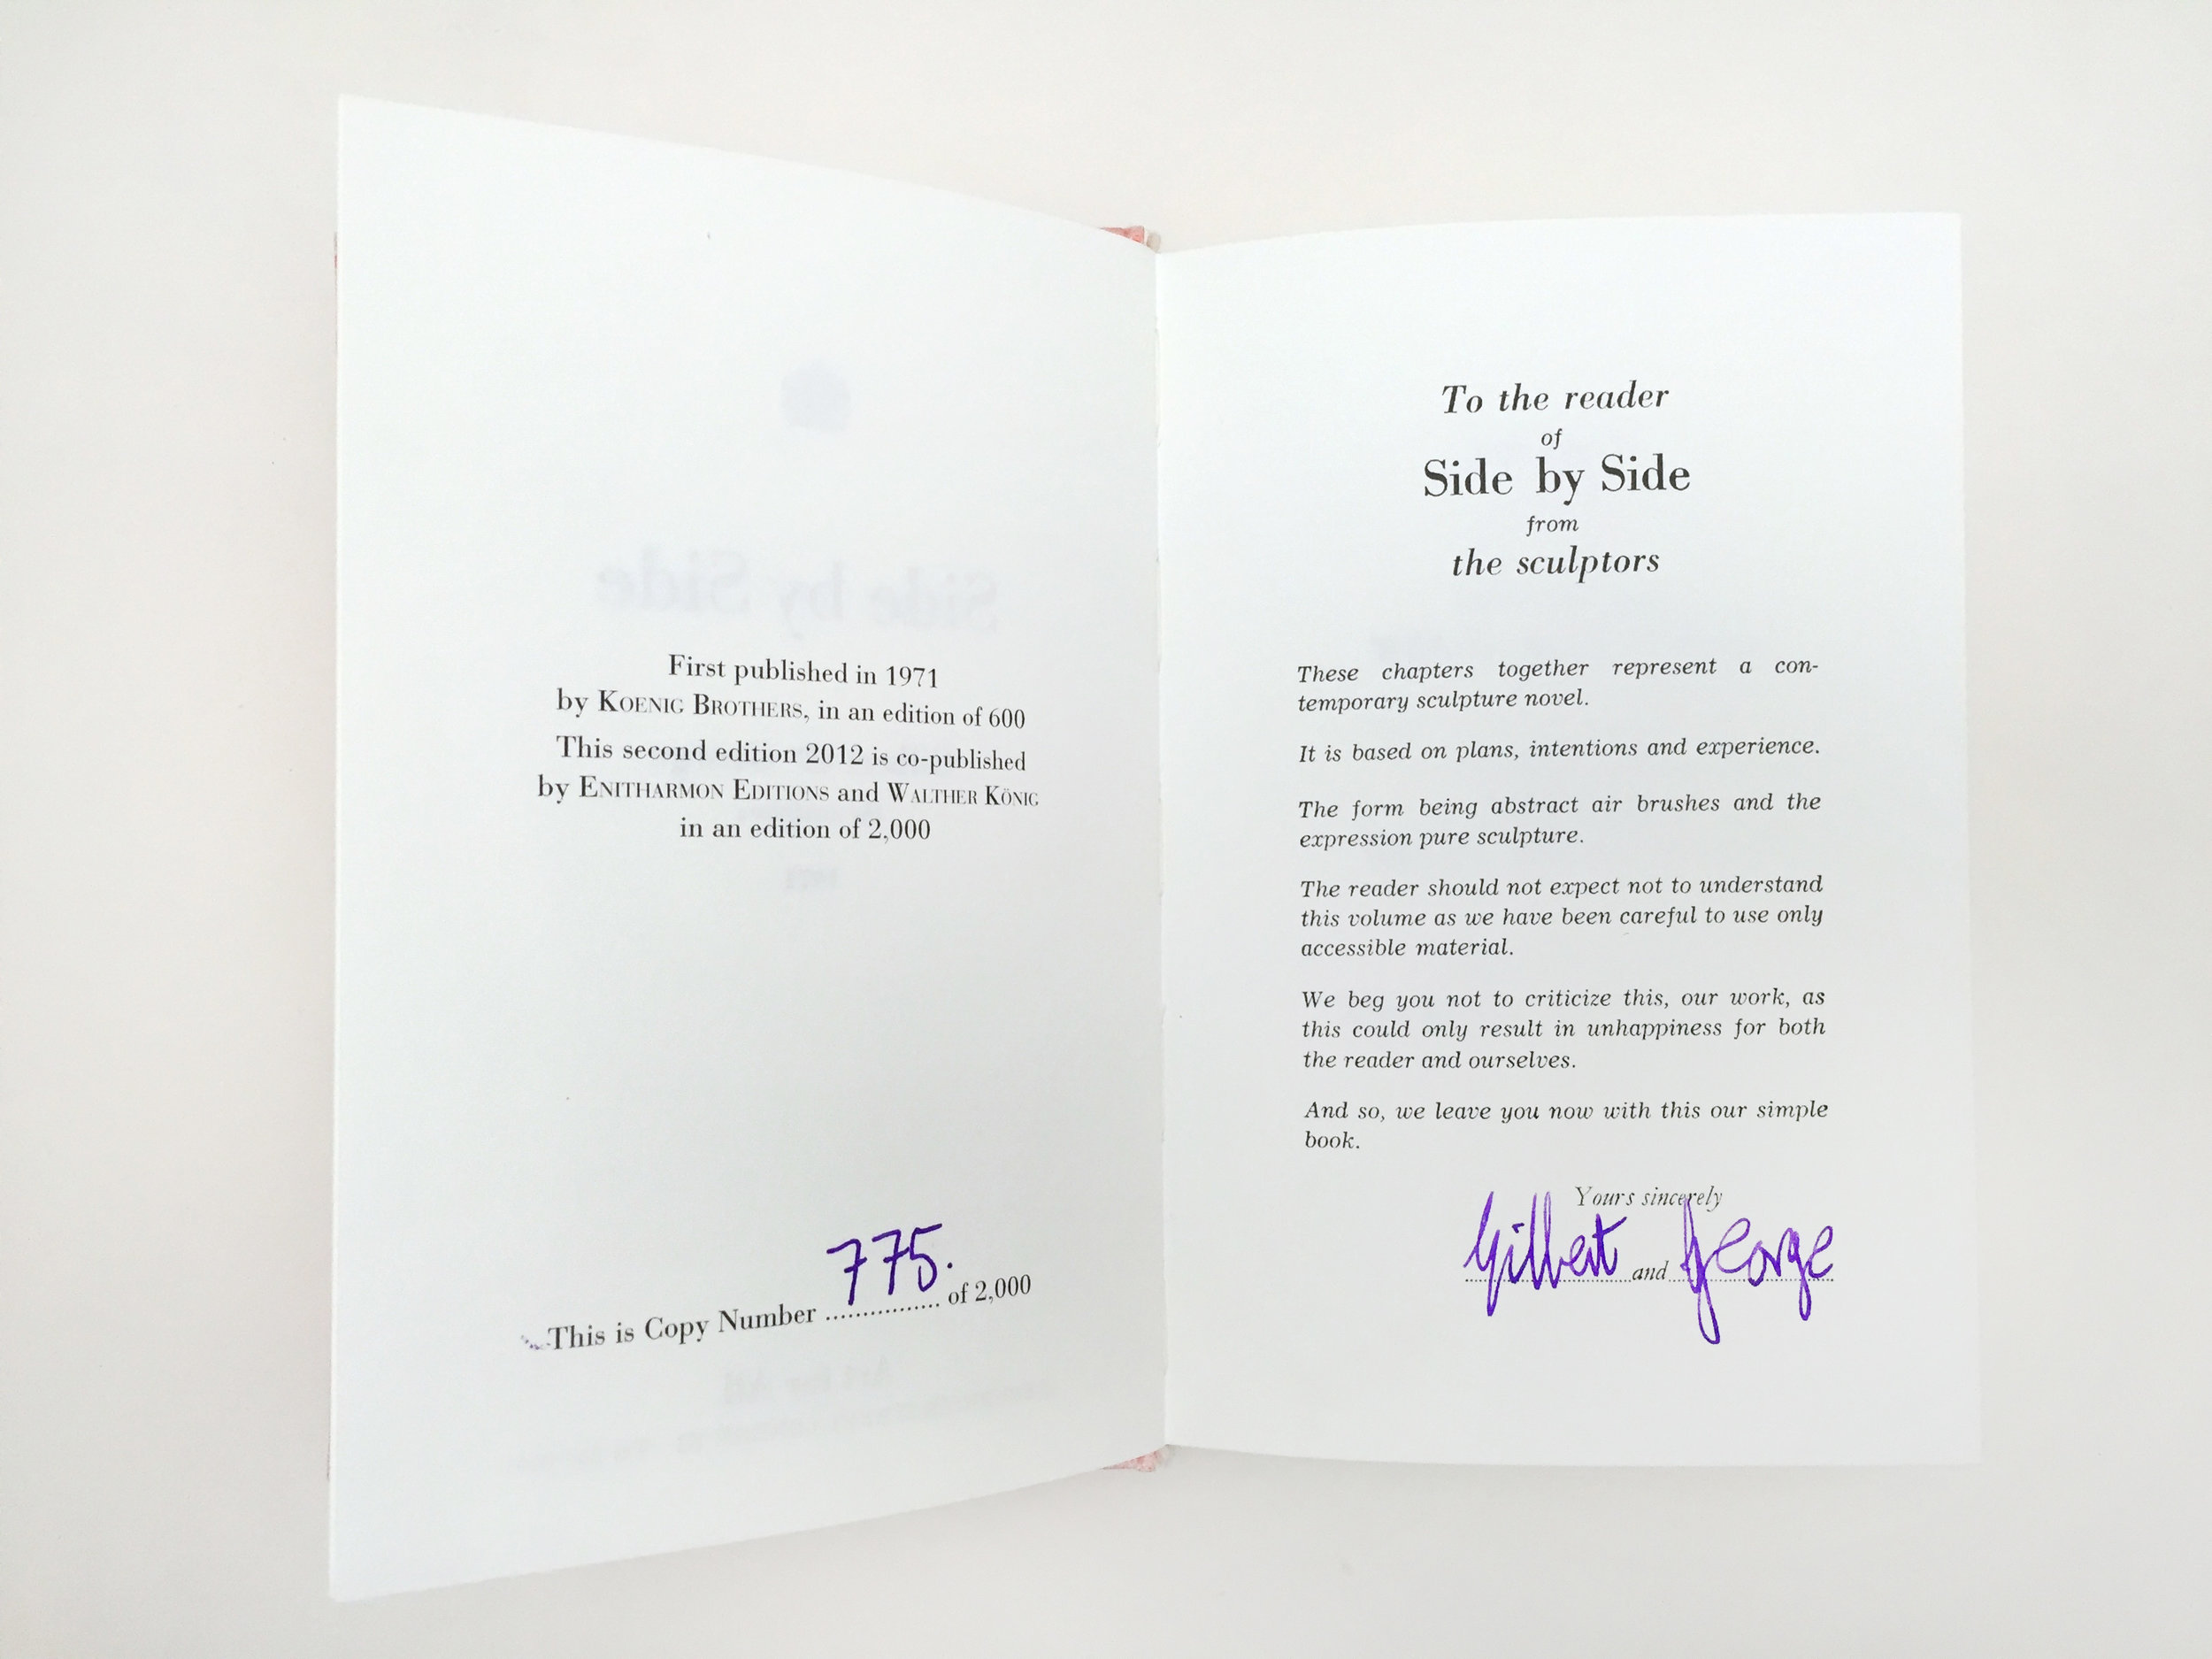 First published in 1971
by KOENIG BROTHERS, in an edition of 600
This second edition 2012 is co-published
by ENITHARMON EDITIONS and WALTHER KÖNIG
in an edition of 2,000
This is Copy Number 775. of 2,000
To the reader
of
Side by Side
from
the sculptors
These chapters together represent a con-
temporary sculpture novel.
It is based on plans, intentions and experience.
The form being abstract air brushes and the
expression pure sculpture.
The reader should not expect not to understand
this volume as we have been careful to use only
accessible material.
We beg you not to criticize this, our work, as
this could only result in unhappiness for both
the reader and ourselves.
And so, we leave you now with this our simple
book.
Yours sincerely
Gilbert and George